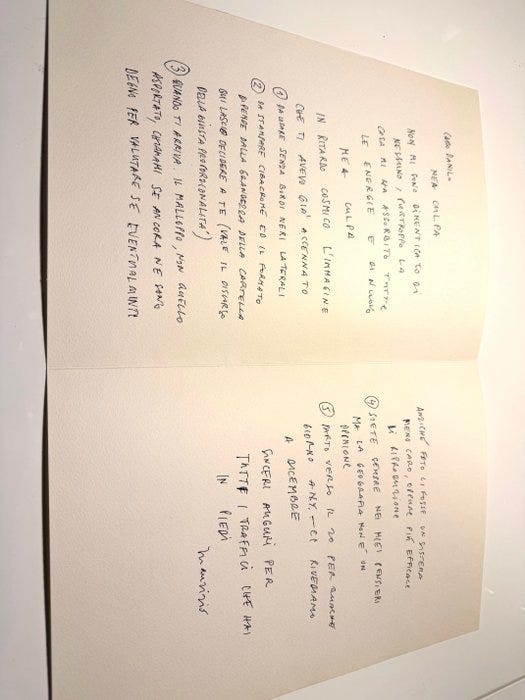 CARO DANILO
MEA CULPA
NON MI SONO DIMENTICATO DI
NESSUNO, PURTROPPO LA
CASA MI HA ASSORBITO TUTTE
LE ENERGIE E DI NUOVO
MEA CULPA
IN RITARDO COSMICO L'IMMAGINE
CHE TI AVEVO GIA' ACCENNATO
① DA USARE SENZA BORDI NERI LATERALI
② DA STAMPARE CIBACROME ED IL FORMATO
DIPENDE DALLA GRANDEZZA DELLA CARTELLA
QUI LASCIO DECIDERE A TE (VALE IL DISCORSO
DELLA GIUSTA PROPORZIONALITA')
③ QUANDO TI ARRIVA IL MALLOPPO, NON QUELLO
ASPORTATO, CHIAMAMI SE ANCORA NE SONO
DEGNO PER VALUTARE SE EVENTUALMENTE
ANZICHÉ FOTO CI FOSSE UN SISTEMA
MENO CARO, OPPURE PIÙ EFFICACE
DI RIPRODUZIONE
④ SIETE SEMPRE NEI MIEI PENSIERI
MA LA GEOGRAFIA NON È UN
OPINIONE
⑤ PARTO VERSO IL 20 PER QUALCHE
GIORNO A N.Y. — CI RIVEDIAMO
A DICEMBRE
SINCERI AUGURI PER
TUTTI I TRAFFICI CHE HAI
IN PIEDI
Maurizio